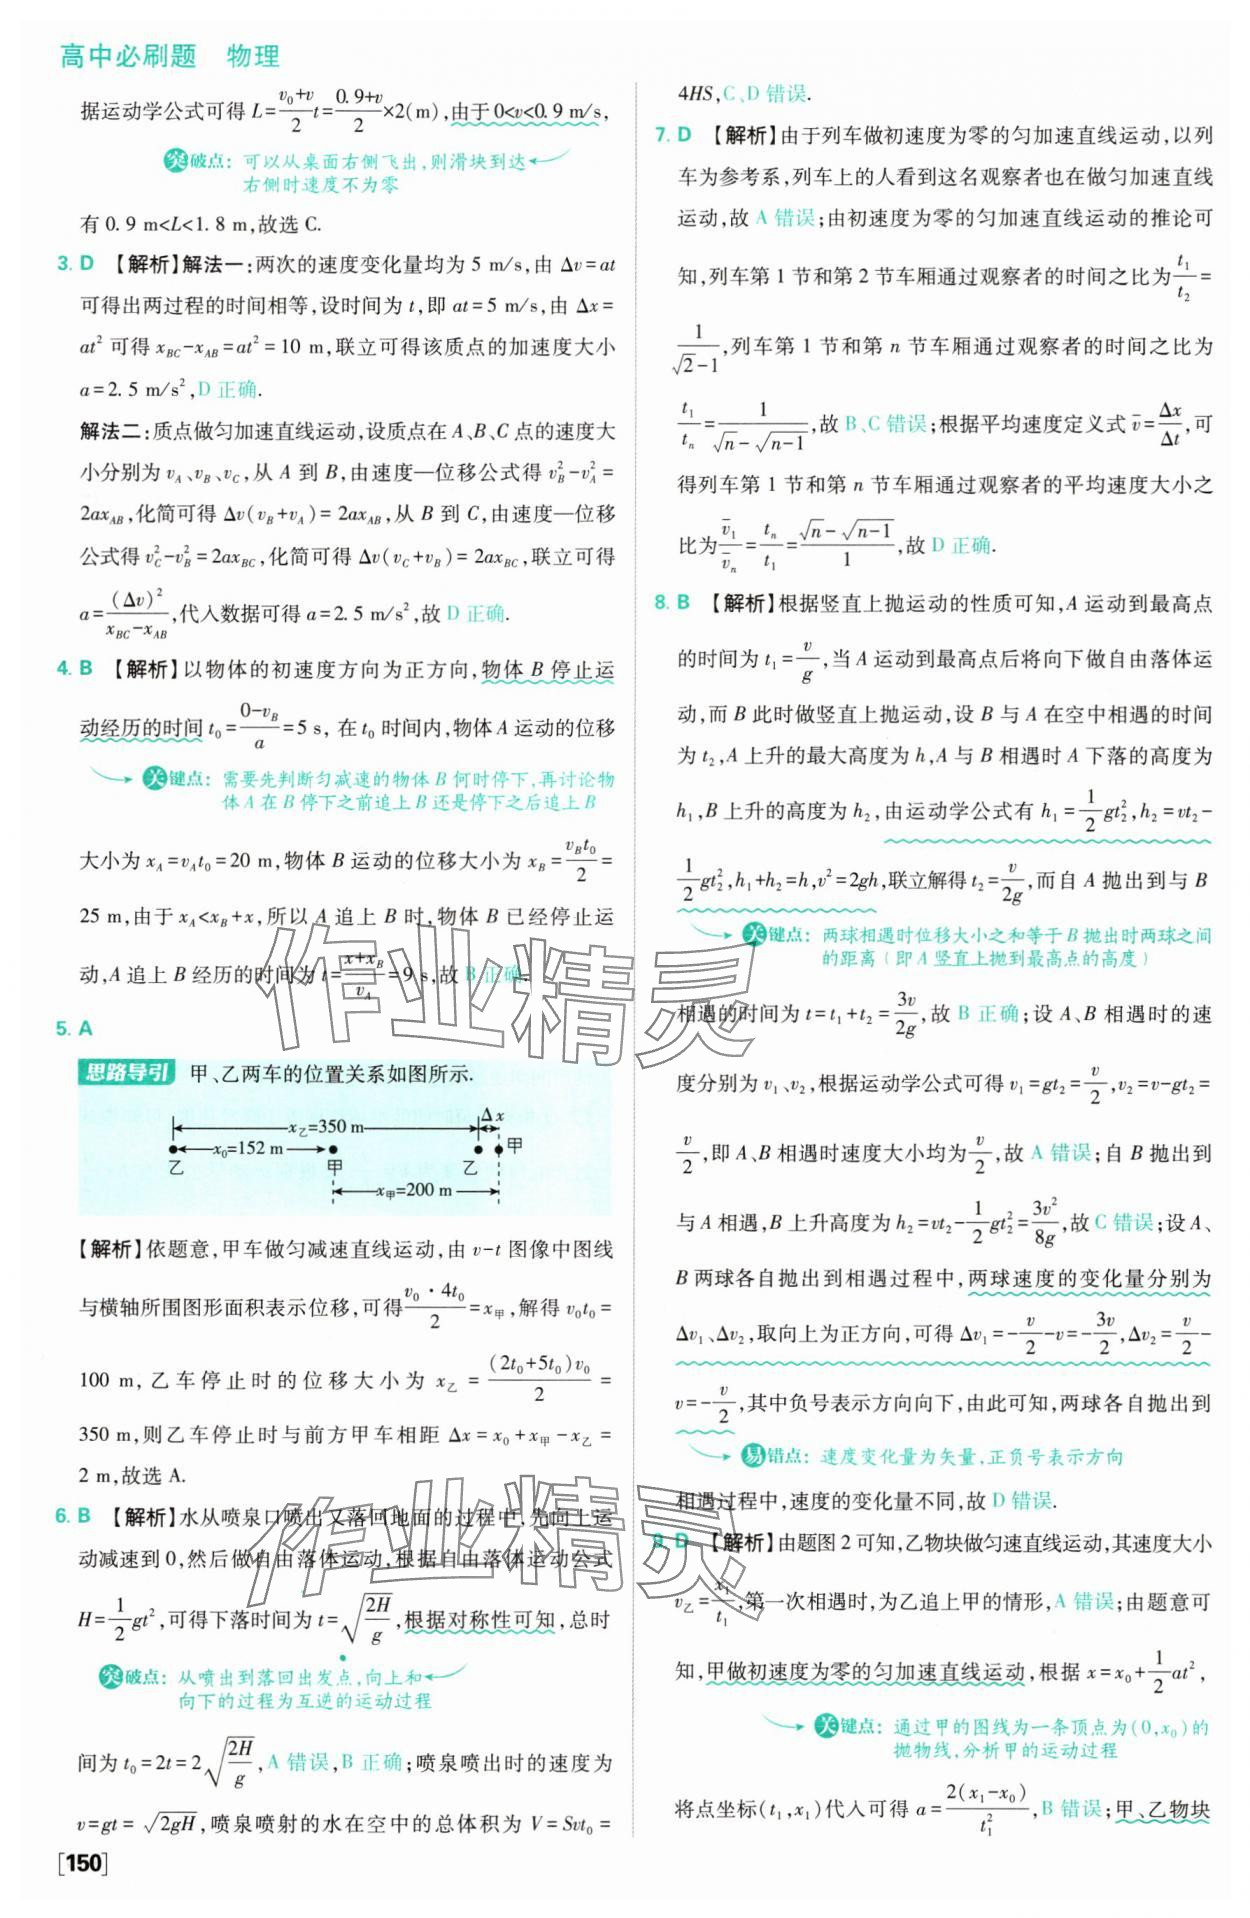 高中必刷题 物理
据运动学公式可得 L=(v₀+v)/2 t=(0.9+v)/2×2(m),由于 0<v<0.9 m/s,
突破点:可以从桌面右侧飞出,则滑块到达
右侧时速度不为零
有 0.9 m<L<1.8 m,故选 C.
3. D 【解析】解法一:两次的速度变化量均为 5 m/s,由 Δv=at
可得出两过程的时间相等,设时间为 t,即 at=5 m/s,由 Δx=
at² 可得 x_BC-x_AB=at²=10 m,联立可得该质点的加速度大小
a=2.5 m/s²,D 正确.
解法二:质点做匀加速直线运动,设质点在 A、B、C 点的速度大
小分别为 v_A、v_B、v_C,从 A 到 B,由速度—位移公式得 v_B²-v_A²=
2ax_AB,化简可得 Δv(v_B+v_A)=2ax_AB,从 B 到 C,由速度—位移
公式得 v_C²-v_B²=2ax_BC,化简可得 Δv(v_C+v_B)=2ax_BC,联立可得
a=(Δv)²/(x_BC-x_AB),代入数据可得 a=2.5 m/s²,故 D 正确.
4. B 【解析】以物体的初速度方向为正方向,物体 B 停止运
动经历的时间 t₀=(0-v_B)/a=5 s,在 t₀ 时间内,物体 A 运动的位移
关键点:需要先判断匀减速的物体 B 何时停下,再讨论物
体 A 在 B 停下之前追上 B 还是停下之后追上 B
大小为 x_A=v_At₀=20 m,物体 B 运动的位移大小为 x_B=v_Bt₀/2=
25 m,由于 x_A<x_B+x,所以 A 追上 B 时,物体 B 已经停止运
动,A 追上 B 经历的时间为 t=(x+x_B)/v_A=9 s,故 B 正确.
5. A
思路导引 甲、乙两车的位置关系如图所示.
x乙=350 m Δx
x₀=152 m 甲
乙 甲 乙
x甲=200 m
【解析】依题意,甲车做匀减速直线运动,由 v-t 图像中图线
与横轴所围图形面积表示位移,可得(v₀·4t₀)/2=x甲,解得 v₀t₀=
100 m,乙车停止时的位移大小为 x乙=(2t₀+5t₀)v₀/2=
350 m,则乙车停止时与前方甲车相距 Δx=x₀+x甲-x乙=
2 m,故选 A.
6. B 【解析】水从喷泉口喷出又落回地面的过程中,先向上运
动减速到 0,然后做自由落体运动,根据自由落体运动公式
H=1/2 gt²,可得下落时间为 t=√(2H/g),根据对称性可知,总时
突破点:从喷出到落回出发点,向上和
向下的过程为互逆的运动过程
间为 t₀=2t=2√(2H/g),A 错误,B 正确;喷泉喷出时的速度为
v=gt=√(2gH),喷泉喷射的水在空中的总体积为 V=Svt₀=
[150]
4HS,C、D 错误.
7. D 【解析】由于列车做初速度为零的匀加速直线运动,以列
车为参考系,列车上的人看到这名观察者也在做匀加速直线
运动,故 A 错误;由初速度为零的匀加速直线运动的推论可
知,列车第 1 节和第 2 节车厢通过观察者的时间之比为 t₁/t₂=
1/(√2-1),列车第 1 节和第 n 节车厢通过观察者的时间之比为
t₁/tₙ=1/(√n-√(n-1)),故 B、C 错误;根据平均速度定义式 v̄=Δx/Δt,可
得列车第 1 节和第 n 节车厢通过观察者的平均速度大小之
比为 v̄₁/v̄ₙ=tₙ/t₁=(√n-√(n-1))/1,故 D 正确.
8. B 【解析】根据竖直上抛运动的性质可知,A 运动到最高点
的时间为 t₁=v/g,当 A 运动到最高点后将向下做自由落体运
动,而 B 此时做竖直上抛运动,设 B 与 A 在空中相遇的时间
为 t₂,A 上升的最大高度为 h,A 与 B 相遇时 A 下落的高度为
h₁,B 上升的高度为 h₂,由运动学公式有 h₁=1/2 gt₂²,h₂=vt₂-
1/2 gt₂²,h₁+h₂=h,v²=2gh,联立解得 t₂=v/2g,而自 A 抛出到与 B
关键点:两球相遇时位移大小之和等于 B 抛出时两球之间
的距离(即 A 竖直上抛到最高点的高度)
相遇的时间为 t=t₁+t₂=3v/2g,故 B 正确;设 A、B 相遇时的速
度分别为 v₁、v₂,根据运动学公式可得 v₁=gt₂=v/2,v₂=v-gt₂=
v/2,即 A、B 相遇时速度大小均为 v/2,故 A 错误;自 B 抛出到
与 A 相遇,B 上升高度为 h₂=vt₂-1/2 gt₂²=3v²/8g,故 C 错误;设 A、
B 两球各自抛出到相遇过程中,两球速度的变化量分别为
Δv₁、Δv₂,取向上为正方向,可得 Δv₁=-v/2-v=-3v/2,Δv₂=v/2-
v=-v/2,其中负号表示方向向下,由此可知,两球各自抛出到
易错点:速度变化量为矢量,正负号表示方向
相遇过程中,速度的变化量不同,故 D 错误.
9. D 【解析】由题图 2 可知,乙物块做匀速直线运动,其速度大小
v乙=x₁/t₁,第一次相遇时,为乙追上甲的情形,A 错误;由题意可
知,甲做初速度为零的匀加速直线运动,根据 x=x₀+1/2 at²,
关键点:通过甲的图线为一条顶点为(0,x₀)的
抛物线,分析甲的运动过程
将点坐标(t₁,x₁)代入可得 a=2(x₁-x₀)/t₁²,B 错误;甲、乙物块
作业精灵
作业精灵